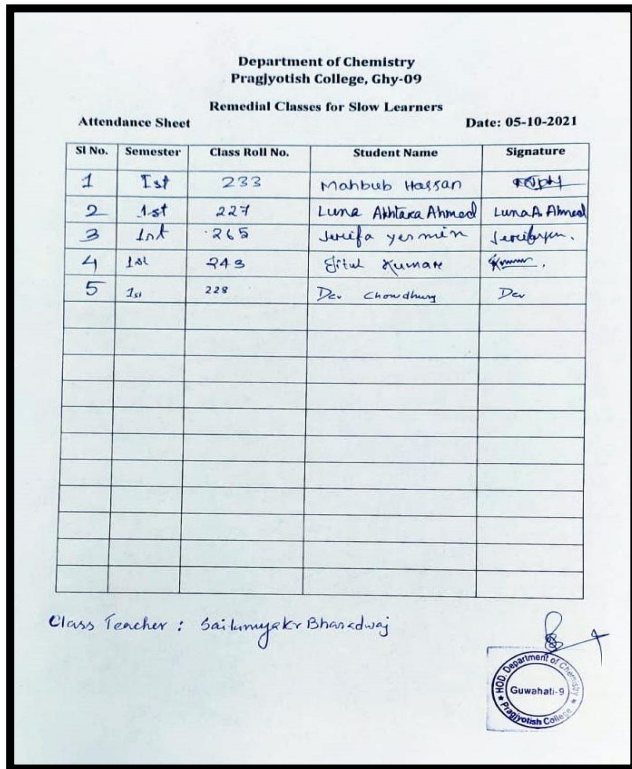 Department of Chemistry
Pragjyotish College, Ghy-09
Remedial Classes for Slow Learners
Attendance Sheet Date: 05-10-2021
Sl No. Semester Class Roll No. Student Name Signature
1 Ist 233 Mahbub Hassan
2 1st 227 Luna Akhtara Ahmed Luna A. Ahmed
3 1st 265 Jerifa yesmin
4 1st 243 Kumar
5 1st 228 Dev Chowdhury Dev
Class Teacher : Bharadwaj
HOD, Department of Chemistry
Guwahati-9
Pragjyotish College